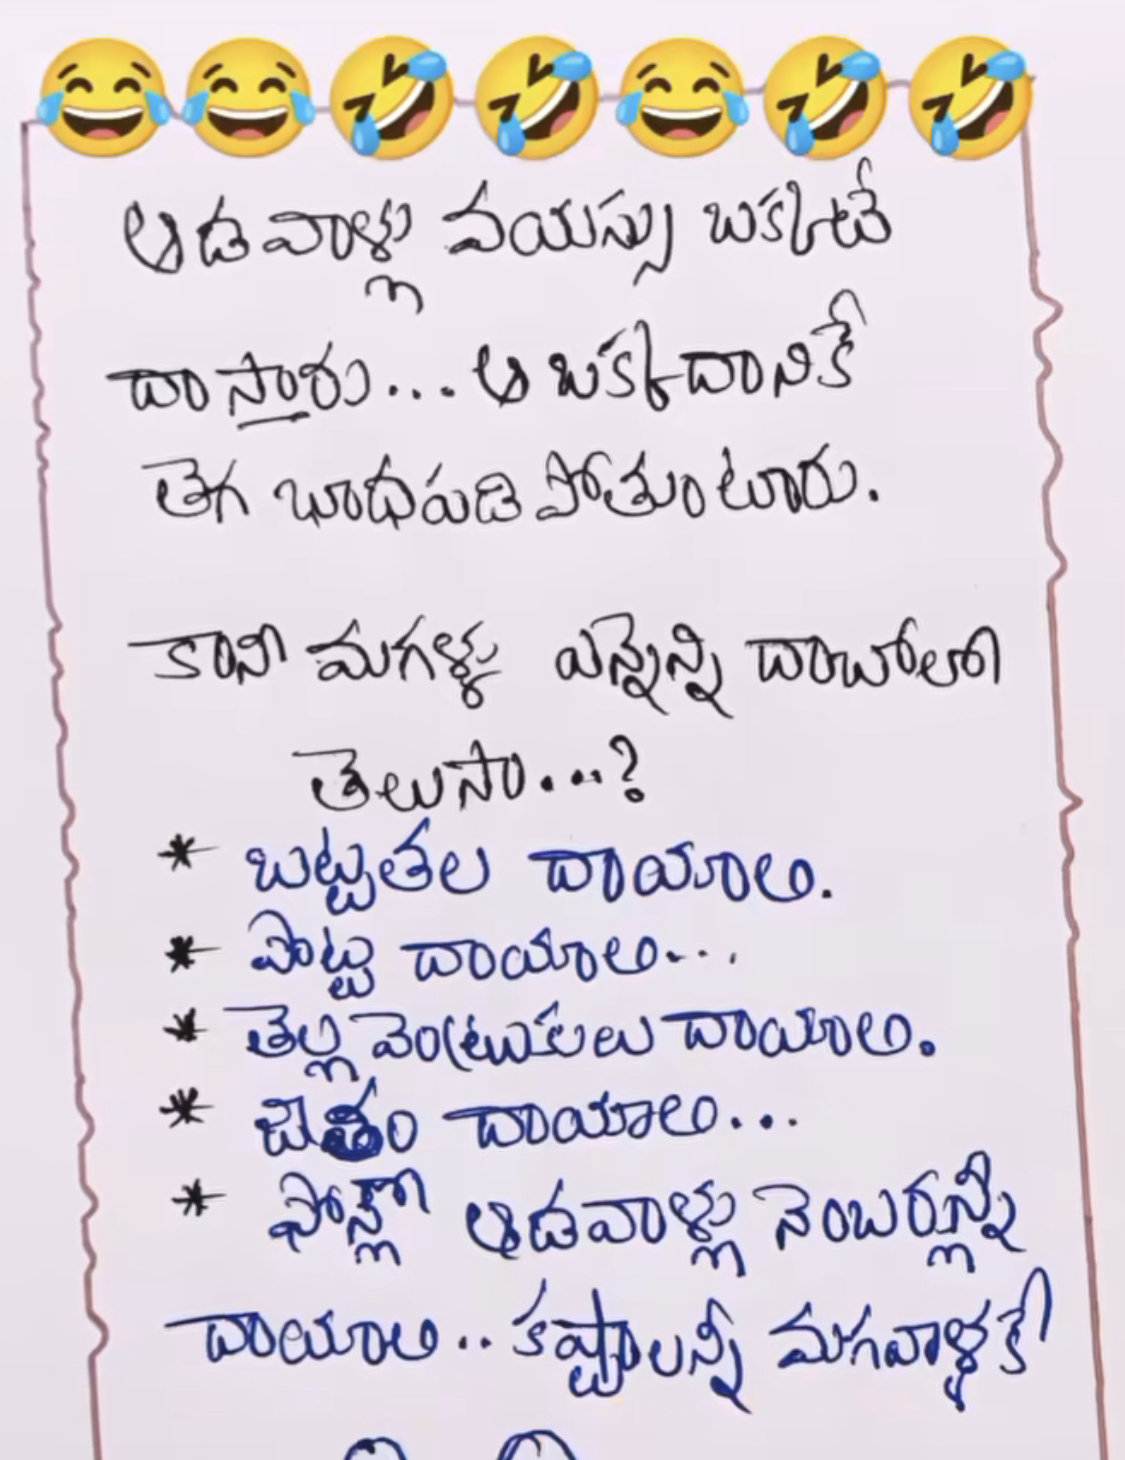 ఆడవాళ్లు వయస్సు ఒక్కటే
దాస్తారు... ఆ ఒక్కదానికే
తెగ బాధపడి పోతుంటారు.
కాని మగాళ్ళు ఎన్నెన్ని దాచాలో
తెలుసా...?
* బట్టతల దాయాలి.
* పొట్ట దాయాలి...
* తెల్ల వెంట్రుకలు దాయాలి.
* జీతం దాయాలి...
* ఫోన్లో ఆడవాళ్లు నెంబర్లన్నీ
దాయాలి.. కష్టాలన్నీ మగవాళ్ళకే